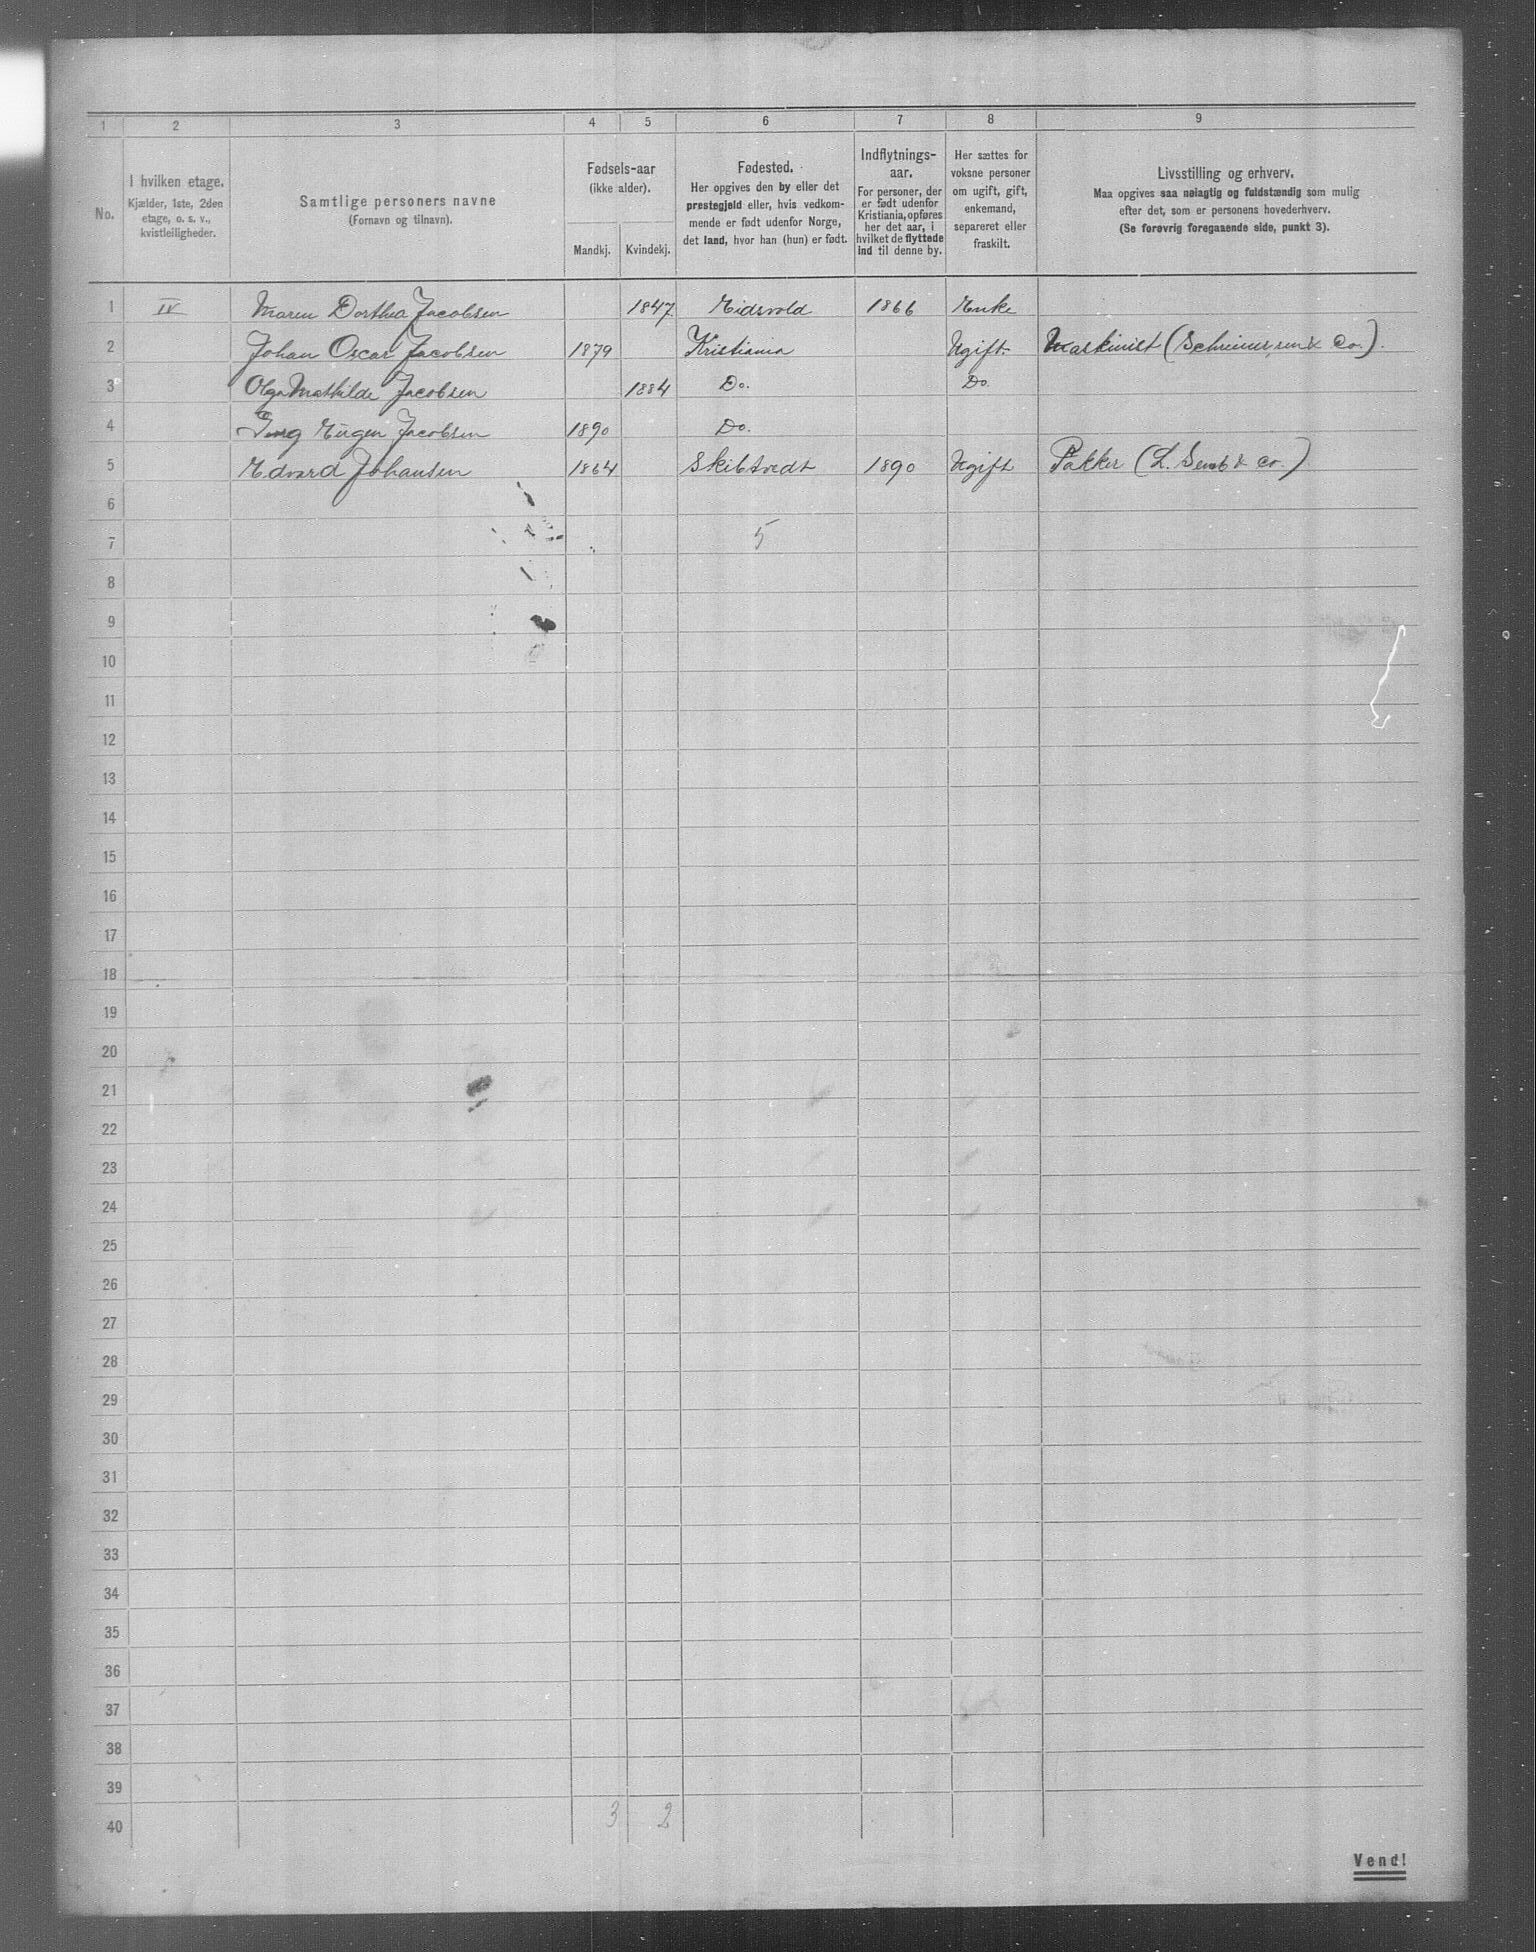 1 2 3 4 5 6 7 8 9
No.
I hvilken etage.
Kjælder, 1ste, 2den
etage, o. s. v.,
kvistleiligheder.
Samtlige personers navne
(Fornavn og tilnavn).
Fødsels-aar
(ikke alder).
Mandkj. Kvindekj.
Fødested.
Her opgives den by eller det
prestegjeld eller, hvis vedkom-
mende er født udenfor Norge,
det land, hvor han (hun) er født.
Indflytnings-
aar.
For personer, der
er født udenfor
Kristiania, opføres
her det aar, i
hvilket de flyttede
ind til denne by.
Her sættes for
voksne personer
om ugift, gift,
enkemand,
separeret eller
fraskilt.
Livsstilling og erhverv.
Maa opgives saa nøiagtig og fuldstændig som mulig
efter det, som er personens hovederhverv.
(Se forøvrig foregaaende side, punkt 3).
1 IV Maren Dorthea Jacobsen 1847 Eidsvold 1866 Enke
2 Johan Oscar Jacobsen 1879 Kristiania Ugift Maskinist ( & Co.).
3 Olga Mathilde Jacobsen 1884 Do. Do.
4 Eugen Jacobsen 1890 Do.
5 Edvard Johansen 1864 Skibtvedt 1890 Ugift Pakker (L. & Co.)
6
7 5
8
9
10
11
12
13
14
15
16
17
18
19
20
21
22
23
24
25
26
27
28
29
30
31
32
33
34
35
36
37
38
39
40 3 2
Vend!